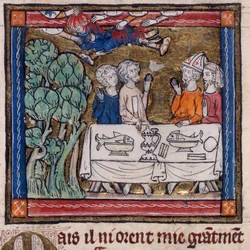 Mais il ni orent mie gra͂tmēt